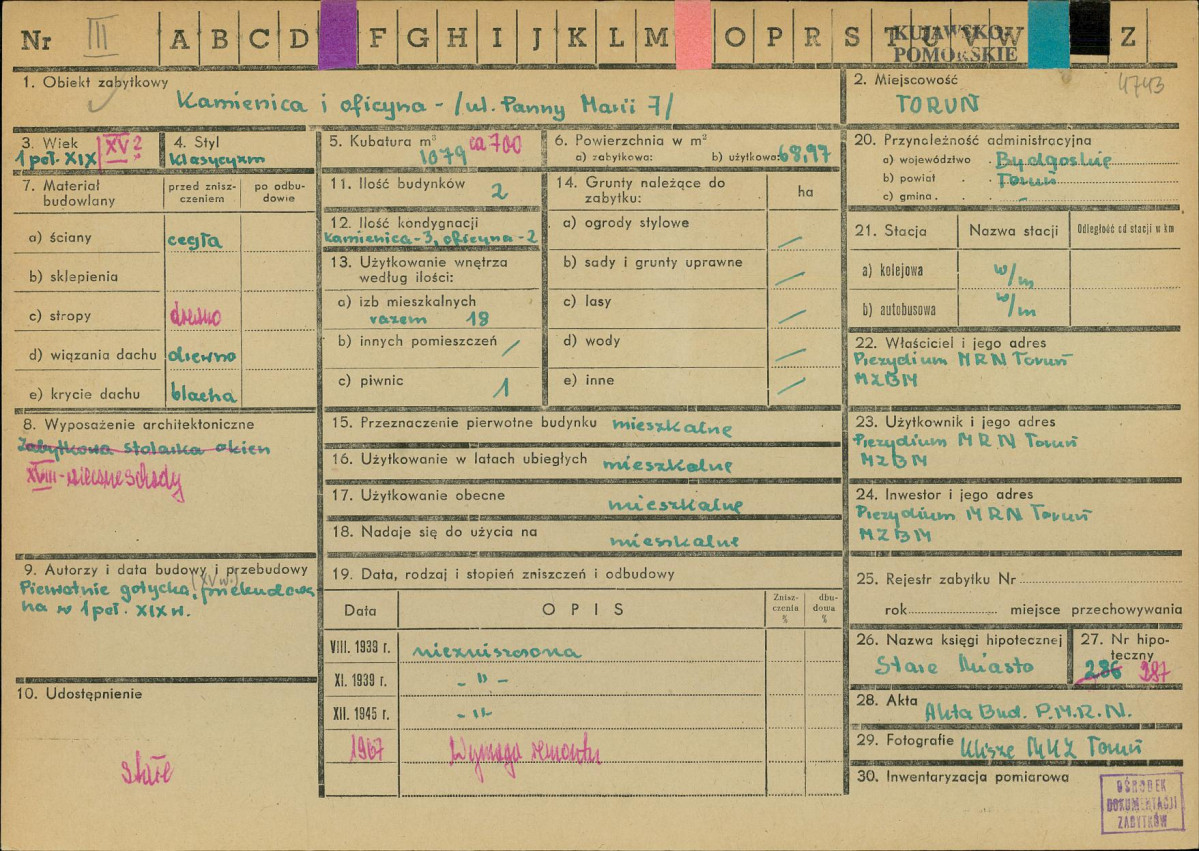 Nr III A B C D F G H I J K L M O P R S T U W Z
KUJAWSKO-
POMORSKIE
1. Obiekt zabytkowy
Kamienica i oficyna - /ul. Panny Marii 7/
2. Miejscowość 4743
TORUŃ
3. Wiek
1 poł. XIX XV?
4. Styl
klasycyzm
5. Kubatura m³ ca 700
1079
6. Powierzchnia w m²
a) zabytkowa: b) użytkowa: 68,97
7. Materiał budowlany
przed zniszczeniem
po odbudowie
a) ściany cegła
b) sklepienia
c) stropy drewno
d) wiązania dachu drewno
e) krycie dachu blacha
8. Wyposażenie architektoniczne
Zabytkowa stolarka okien
XVIII-wieczne schody
9. Autorzy i data budowy i przebudowy
Pierwotnie gotycka (XV w.), przebudowa
na w 1 poł. XIX w.
10. Udostępnienie
stałe
11. Ilość budynków 2
12. Ilość kondygnacji
Kamienica-3, oficyna-2
13. Użytkowanie wnętrza
według ilości:
a) izb mieszkalnych
razem 18
b) innych pomieszczeń /
c) piwnic 1
14. Grunty należące do
zabytku: ha
a) ogrody stylowe /
b) sady i grunty uprawne /
c) lasy /
d) wody /
e) inne /
15. Przeznaczenie pierwotne budynku mieszkalne
16. Użytkowanie w latach ubiegłych mieszkalne
17. Użytkowanie obecne mieszkalne
18. Nadaje się do użycia na mieszkalne
19. Data, rodzaj i stopień zniszczeń i odbudowy
Data OPIS Zniszczenia % dbudowa %
VIII. 1939 r. niezniszczona
XI. 1939 r. - " -
XII. 1945 r. - " -
1967 Wymaga remontu
20. Przynoleżność administracyjna
a) województwo Bydgoskie
b) powiat Toruń
c) gmina -
21. Stacja Nazwa stacji Odległość od stacji w km
a) kolejowa w/m
b) autobusowa w/m
22. Właściciel i jego adres
Prezydium MRN Toruń
MZBM
23. Użytkownik i jego adres
Prezydium MRN Toruń
MZBM
24. Inwestor i jego adres
Prezydium MRN Toruń
MZBM
25. Rejestr zabytku Nr
rok miejsce przechowywania
26. Nazwa księgi hipotecznej
Stare Miasto
27. Nr hipoteczny
286 287
28. Akta Akta Bud. P.M.R.N.
29. Fotografie Klisze MKZ Toruń
30. Inwentaryzacja pomiarowa
OŚRODEK
DOKUMENTACJI
ZABYTKÓW